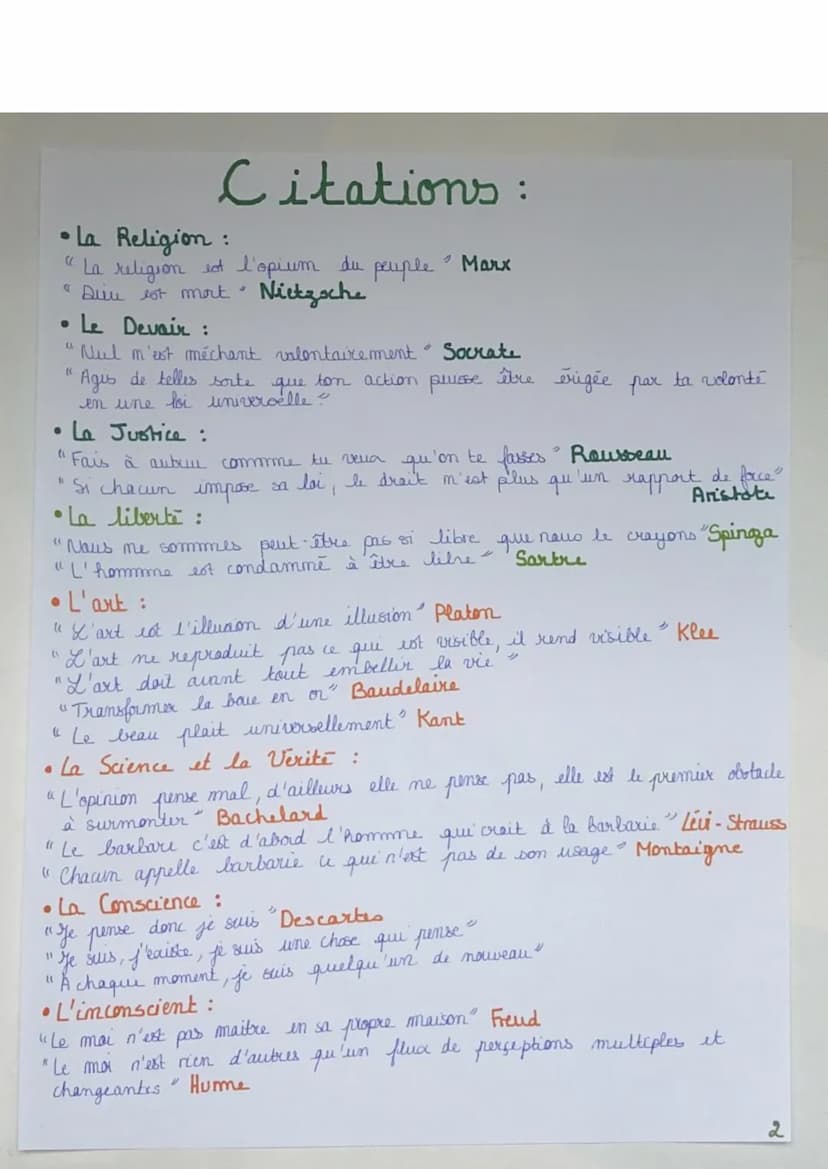 Citations :
• La Religion :
"La religion est l'opium du peuple" Marx
"Dieu est mort" Nietzsche
• Le Devoir :
"Nul n'est méchant volontairement" Socrate
"Agis de telles sorte que ton action puisse être érigée par ta volonté
en une loi universelle"
• La Justice :
"Fais à autrui commme tu veux qu'on te fasses" Rousseau
"Si chacun impose sa loi, le droit n'est plus qu'un rapport de force"
Aristote
• La liberté :
"Nous ne sommes peut-être pas si libre que nous le crayons" Spinoza
"L'hommme est condammé à être libre" Sartre
• L'art :
"L'art est l'illusion d'une illusion" Platon
"L'art ne reproduit pas ce qui est visible, il rend visible" Klee
"L'art doit avant tout embellir la vie"
"Transformer la boue en or" Baudelaire
"Le beau plait universellement" Kant
• La Science et la Vérité :
"L'opinion pense mal, d'ailleurs elle ne pense pas, elle est le premier obstacle
à surmonter" Bachelard
"Le barbare c'est d'abord l'hommme qui croit à la barbarie" Lévi-Strauss
"Chacun appelle barbarie ce qui n'est pas de son usage" Montaigne
• La Conscience :
"Je pense donc je suis" Descartes
"Je suis, j'existe, je suis une chose qui pense"
"À chaque moment, je suis quelqu'un de nouveau"
• L'inconscient :
"Le moi n'est pas maitre en sa propre maison" Freud
"Le moi n'est rien d'autres qu'un flux de perçeptions multiples et
changeantes" Hume
2